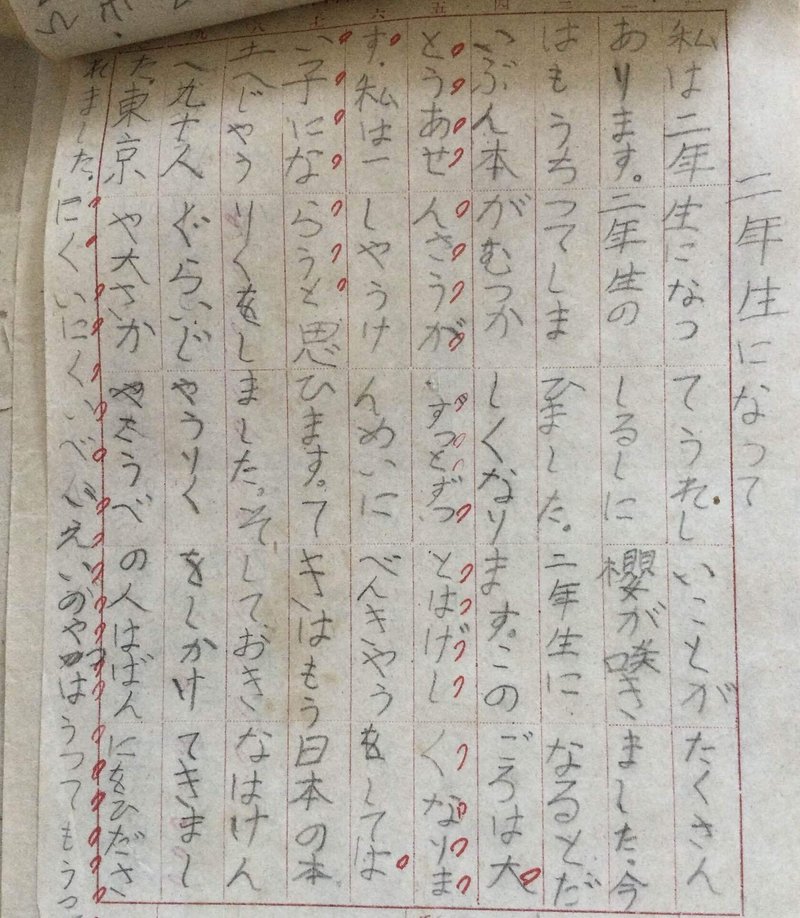 二年生になって
私は二年生になつてうれしいことがたくさん
あります。二年生のしるしに櫻が咲きました。今
はもうちつてしまひました。二年生になるとだ
いぶん本がむつかしくなります。このごろは大
とうあせんさうがずつとずつとはげしくなりま
す。私は一しやうけんめいにべんきやうをしてよ
い子にならうと思ひます。てきはもう日本の本
土へじやうりくをしました。そしておきなはけん
へ九十人ぐらいじやうりくをしかけてきまし
た。東京や大さかやこうべの人はばんにをひださ
れました。にくいにくいべいえいのやつはうつてもうつ